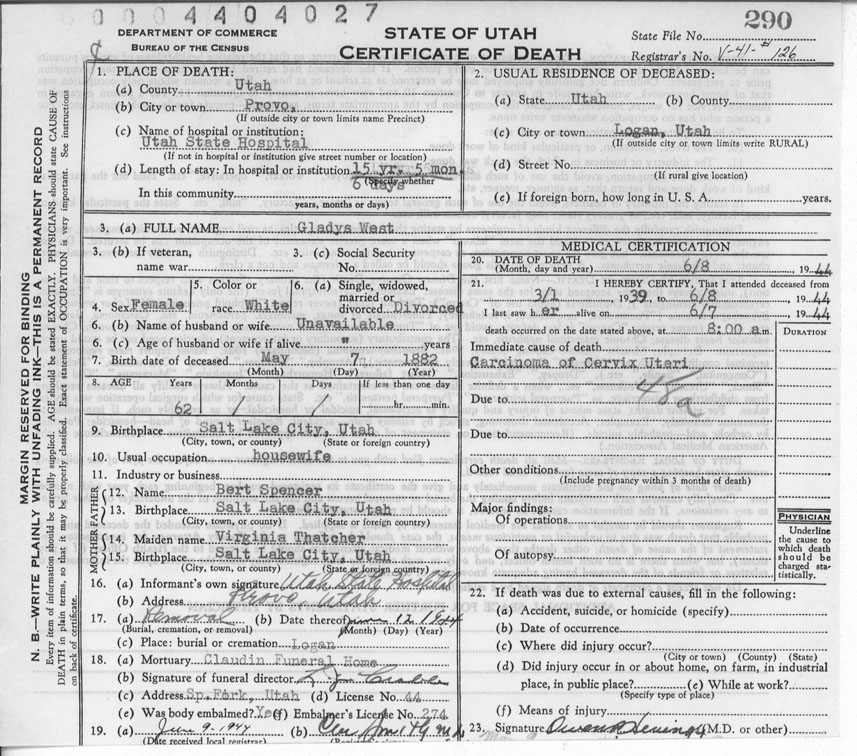 0004404027
290
DEPARTMENT OF COMMERCE
BUREAU OF THE CENSUS
STATE OF UTAH
CERTIFICATE OF DEATH
State File No.
Registrar's No. V-41-#126
MARGIN RESERVED FOR BINDING
N. B.—WRITE PLAINLY WITH UNFADING INK—THIS IS A PERMANENT RECORD
Every item of information should be carefully supplied. AGE should be stated EXACTLY. PHYSICIANS should state CAUSE OF
DEATH in plain terms, so that it may be properly classified. Exact statement of OCCUPATION is very important. See instructions
on back of certificate.
1. PLACE OF DEATH:
(a) County Utah
(b) City or town Provo,
(If outside city or town limits name Precinct)
(c) Name of hospital or institution:
Utah State Hospital
(If not in hospital or institution give street number or location)
(d) Length of stay: In hospital or institution 15 yr. 5 mon.
6 days
(Specify whether
In this community
years, months or days)
2. USUAL RESIDENCE OF DECEASED:
(a) State Utah (b) County
(c) City or town Logan, Utah
(If outside city or town limits write RURAL)
(d) Street No.
(If rural give location)
(e) If foreign born, how long in U. S. A. years.
3. (a) FULL NAME Gladys West
3. (b) If veteran,
name war
3. (c) Social Security
No.
4. Sex Female
5. Color or
race White
6. (a) Single, widowed,
married or
divorced Divorced
6. (b) Name of husband or wife Unavailable
6. (c) Age of husband or wife if alive " years
7. Birth date of deceased May 7 1882
(Month) (Day) (Year)
8. AGE Years Months Days If less than one day
62 1 1 hr. min.
9. Birthplace Salt Lake City, Utah
(City, town, or county) (State or foreign country)
10. Usual occupation housewife
11. Industry or business
FATHER
12. Name Bert Spencer
13. Birthplace Salt Lake City, Utah
(City, town, or county) (State or foreign country)
MOTHER
14. Maiden name Virginia Thatcher
15. Birthplace Salt Lake City, Utah
(City, town, or county) (State or foreign country)
16. (a) Informant's own signature Utah State Hospital
(b) Address Provo, Utah
17. (a) Removal (b) Date thereof June 12 1944
(Burial, cremation, or removal) (Month) (Day) (Year)
(c) Place: burial or cremation Logan
18. (a) Mortuary Claudin Funeral Home
(b) Signature of funeral director
(c) Address Sp.Fork, Utah (d) License No. 44
(e) Was body embalmed? Yes (f) Embalmer's License No. 274
19. (a) June 9, 1944 (b)
(Date received local registrar)
MEDICAL CERTIFICATION
20. DATE OF DEATH
(Month, day and year) 6/8 19 44
21. I HEREBY CERTIFY, That I attended deceased from
3/1 1939, to 6/8 19 44
I last saw her alive on 6/7 19 44
death occurred on the date stated above, at 8:00 a m.
DURATION
Immediate cause of death
Carcinoma of Cervix Uteri
48a
Due to
Due to
Other conditions
(Include pregnancy within 3 months of death)
Major findings:
Of operations
Of autopsy
PHYSICIAN
Underline
the cause to
which death
should be
charged sta-
tistically.
22. If death was due to external causes, fill in the following:
(a) Accident, suicide, or homicide (specify)
(b) Date of occurrence
(c) Where did injury occur?
(City or town) (County) (State)
(d) Did injury occur in or about home, on farm, in industrial
place, in public place? (e) While at work?
(Specify type of place)
(f) Means of injury
23. Signature (M.D. or other)